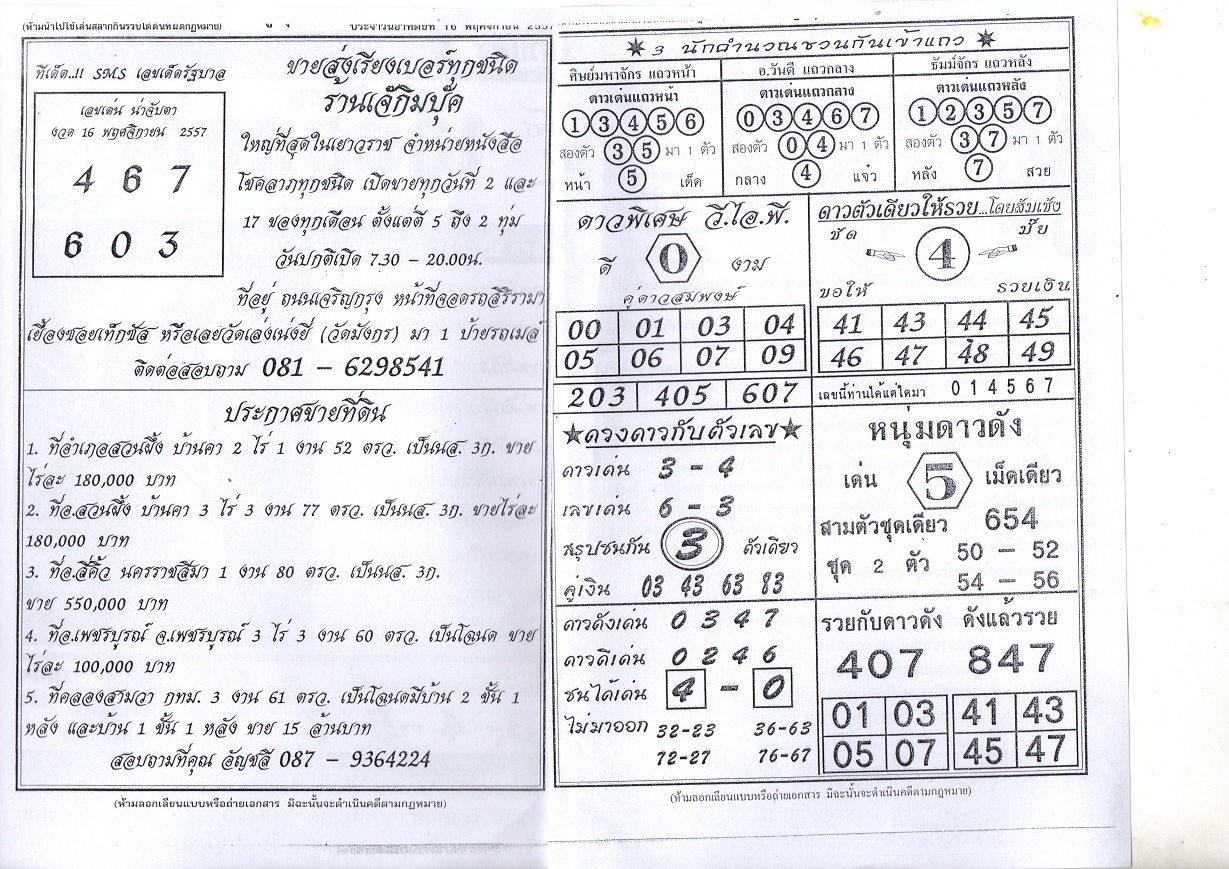 (ห้ามนำไปใช้เล่นสลากกินรวบโดยผิดกฎหมาย)
ประจำวันอาทิตย์ที่ 16 พฤศจิกายน 2557
ทีเด็ด..!! SMS เลขเด็ดรัฐบาล
เลขเด่น น่าจับตา
งวด 16 พฤศจิกายน 2557
4 6 7
6 0 3
ขายส่งเรียงเบอร์ทุกชนิด
ร้านเจ๊กิมบุ๊ค
ใหญ่ที่สุดในเยาวราช จำหน่ายหนังสือ
โชคลาภทุกชนิด เปิดขายทุกวันที่ 2 และ
17 ของทุกเดือน ตั้งแต่ตี 5 ถึง 2 ทุ่ม
วันปกติเปิด 7.30 - 20.00น.
ที่อยู่ ถนนเจริญกรุง หน้าที่จอดรถสิริรามา
เยื้องซอยเท็กซัส หรือเลยวัดเล่งเน่ยยี่ (วัดมังกร) มา 1 ป้ายรถเมล์
ติดต่อสอบถาม 081 - 6298541
ประกาศขายที่ดิน
1. ที่อำเภอสวนผึ้ง บ้านคา 2 ไร่ 1 งาน 52 ตรว. เป็นนส. 3ก. ขาย
ไร่ละ 180,000 บาท
2. ที่อ.สวนผึ้ง บ้านคา 3 ไร่ 3 งาน 77 ตรว. เป็นนส. 3ก. ขายไร่ละ
180,000 บาท
3. ที่อ.สี่คิ้ว นครราชสีมา 1 งาน 80 ตรว. เป็นนส. 3ก.
ขาย 550,000 บาท
4. ที่อ.เพชรบูรณ์ จ.เพชรบูรณ์ 3 ไร่ 3 งาน 60 ตรว. เป็นโฉนด ขาย
ไร่ละ 100,000 บาท
5. ที่คลองสามวา กทม. 3 งาน 61 ตรว. เป็นโฉนดมีบ้าน 2 ชั้น 1
หลัง และบ้าน 1 ชั้น 1 หลัง ขาย 15 ล้านบาท
สอบถามที่คุณ อัญชลี 087 - 9364224
(ห้ามลอกเลียนแบบหรือถ่ายเอกสาร มิฉะนั้นจะดำเนินคดีตามกฎหมาย)
3 นักคำนวณชวนกันเข้าแถว
ศิษย์มหาจักร แถวหน้า
ดาวเด่นแถวหน้า
1 3 4 5 6
สองตัว 3 5 มา 1 ตัว
หน้า 5 เด็ด
อ.วันดี แถวกลาง
ดาวเด่นแถวกลาง
0 3 4 6 7
สองตัว 0 4 มา 1 ตัว
กลาง 4 แจ๋ว
ธัมม์จักร แถวหลัง
ดาวเด่นแถวหลัง
1 2 3 5 7
สองตัว 3 7 มา 1 ตัว
หลัง 7 สวย
ดาวพิเศษ วี.ไอ.พี.
ดี 0 งาม
คู่ดาวสมพงษ์
00 01 03 04
05 06 07 09
203 405 607
ดาวตัวเดียวให้รวย...โดยสับเซ้ง
ชัด 4 ปั๊ย
ขอให้ รวยเงิน
41 43 44 45
46 47 48 49
เลขนี้ท่านได้แต่ใดมา 0 1 4 5 6 7
★ดวงดาวกับตัวเลข★
ดาวเด่น 3 - 4
เลขเด่น 6 - 3
สรุปชนกัน 3 ตัวเดียว
คู่เงิน 03 43 63 83
หนุ่มดาวดัง
เด่น 5 เม็ดเดียว
สามตัวชุดเดียว 654
ชุด 2 ตัว 50 - 52
54 - 56
ดาวดังเด่น 0 3 4 7
ดาวดีเด่น 0 2 4 6
ชนได้เด่น 4 - 0
ไม่มาออก 32-23 36-63
72-27 76-67
รวยกับดาวดัง ดังแล้วรวย
407 847
01 03 41 43
05 07 45 47
(ห้ามลอกเลียนแบบหรือถ่ายเอกสาร มิฉะนั้นจะดำเนินคดีตามกฎหมาย)